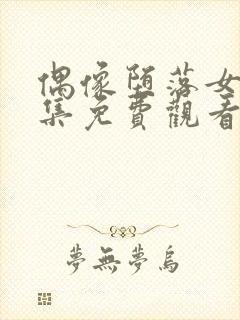 偶像堕落女
集免費觀看
夢無夢烏